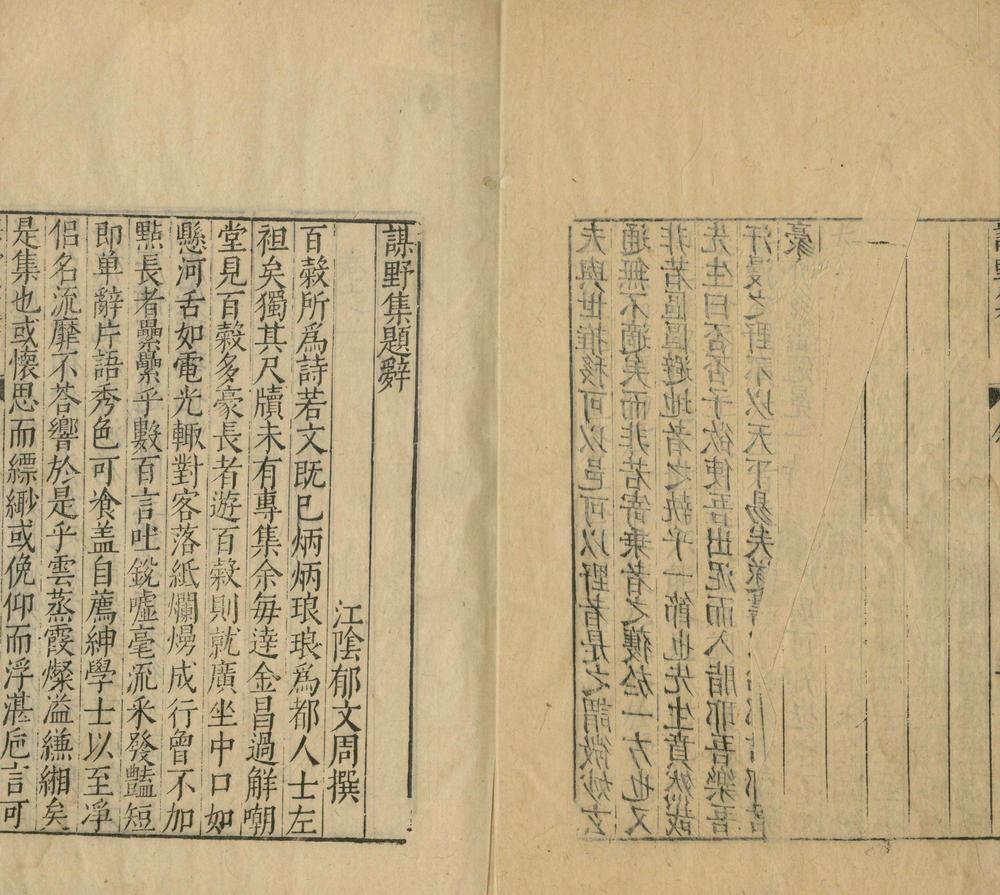 夫與世推移可以邑可以野者是之謂微妙玄
通無不適矣而非若寄乘者之獲於一方也又
非若區區避地者之執乎一節也先生賁然哉
先生曰否否子欲使吾出泥而入脂耶吾樂吾
汗漫之野不以天下易矣遂書
豪
謀野集題辭
江陰郁文周撰
百穀所爲詩若文既已炳炳琅琅爲都人士左
袒矣獨其尺牘未有專集余每逹金昌過解嘲
堂見百穀多豪長者遊百穀則就廣坐中口如
懸河舌如電光輙對客落紙爛熳成行曾不加
點長者纍纍乎數百言吐銳噓毫流釆發豔短
即单辭片語秀色可飡盖自薦紳學士以至淨
侣名流靡不荅響於是乎雲蒸霞燦溢縑緗矣
是集也或懷思而縹緲或俛仰而浮湛巵言可